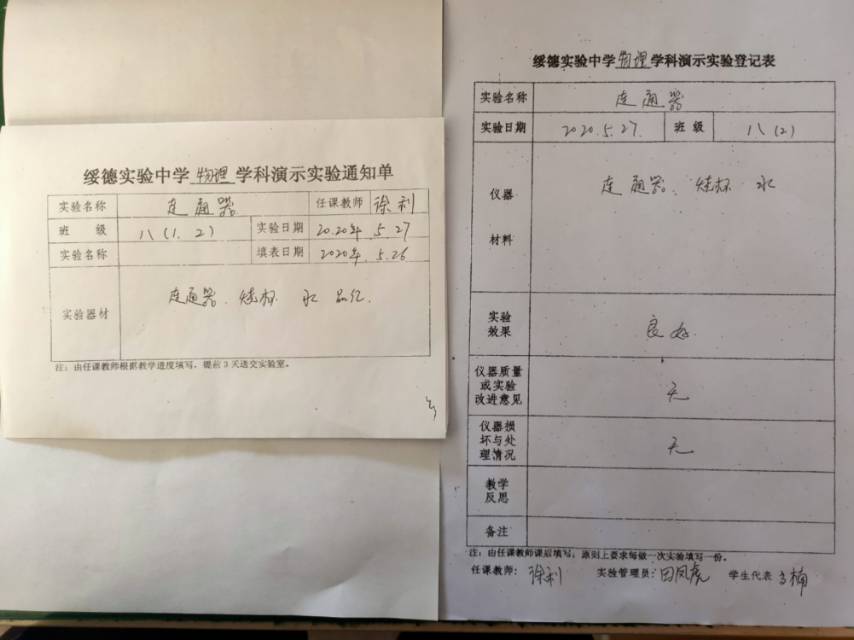 绥德实验中学物理学科演示实验通知单
实验名称 连通器 任课教师 徐利
班 级 八(1.2) 实验日期 2020年.5.27
实验名称 填表日期 2020年.5.26
实验器材 连通器、烧杯 水 品红.
注:由任课教师根据教学进度填写,提前3天送交实验室。
绥德实验中学物理学科演示实验登记表
实验名称 连通器
实验日期 2020.5.27. 班 级 八(2)
仪器
材料
连通器、烧杯 水
实验
效果
良好.
仪器质量
或实验
改进意见
无
仪器损
坏与处
理情况
无
教学
反思
备注
注:由任课教师课后填写,原则上要求每做一次实验填写一份。
任课教师: 徐利 实验管理员: 田凤虎 学生代表 马楠